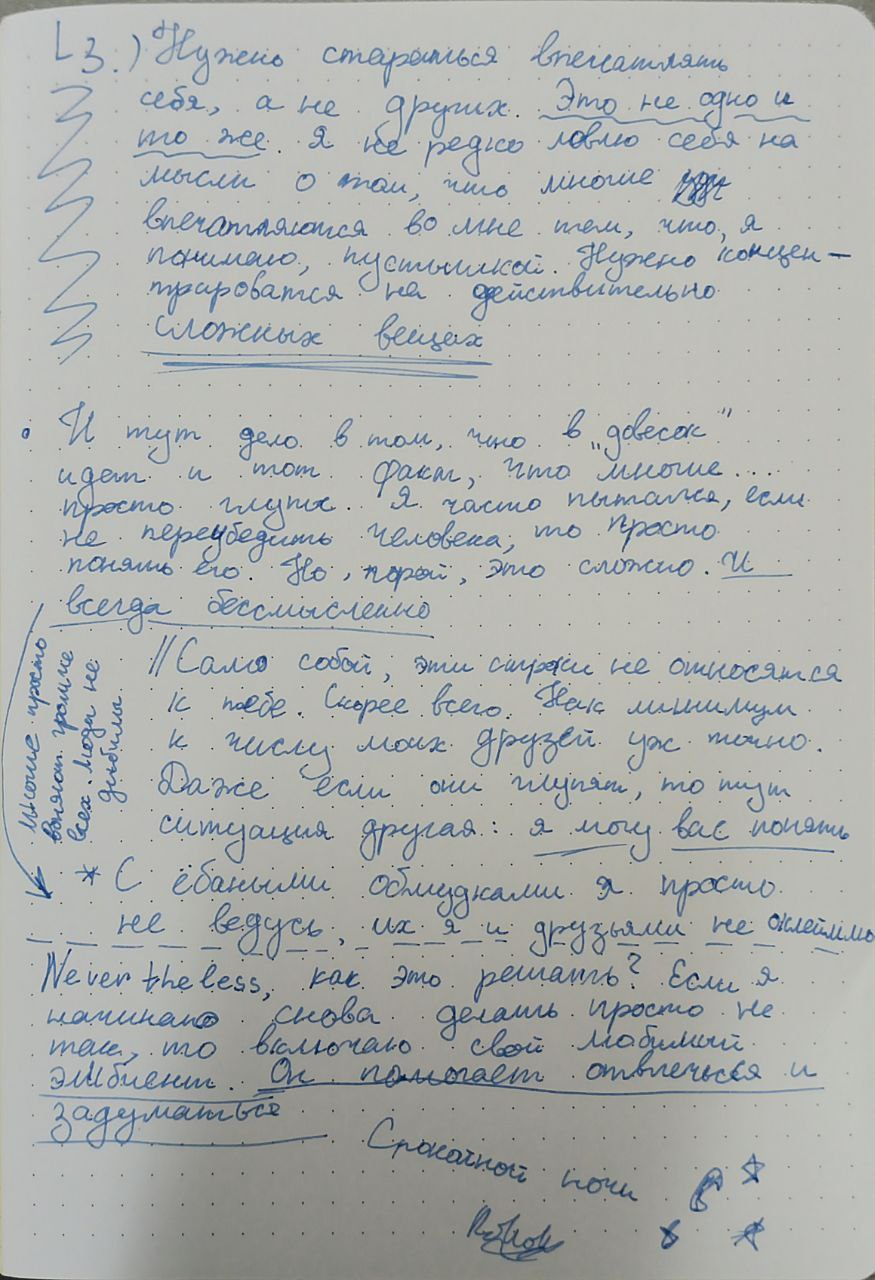 3.) Нужно стараться впечатлять
себя, а не других. Это не одно и
то же. Я не редко ловлю себя на
мысли о том, что многие
впечатляются во мне тем, что, я
понимаю, пустышкой. Нужно концен-
трироватся на действительно
сложных вещах
И тут дело в том, что в „довесок"
идет и тот факт, что многие...
просто глупы. Я часто пытался, если
не переубедить человека, то просто
понять его. Но, порой, это сложно. И
всегда бессмысленно
многие просто
воняют громче
всех. Люди не
дибилы
//Само собой, эти строки не относятся
к тебе. Скорее всего. Как минимум
к числу моих друзей уж точно.
Даже если они глупят, то тут
ситуация другая: я могу вас понять
* С ёбаными обмудками я просто
не ведусь, их я и друзьями не
Never the less, как это решать? Если я
начинаю снова делать просто не
так, то включаю свой любимый
эмбиент. Он помогает отвлечься и
задуматься
ночи